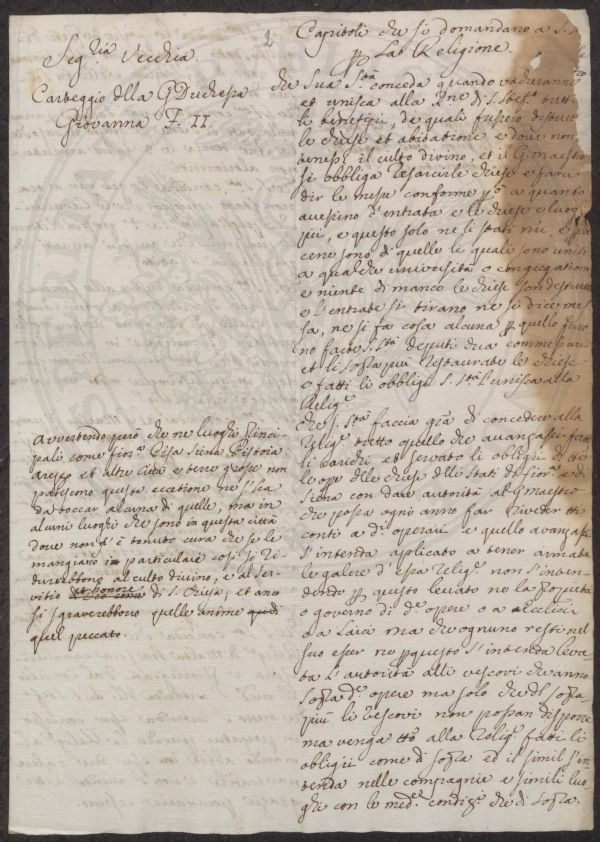 Seg.ria Vecchia.
Carteggio della G Duchessa
Giovanna F. II.
2
Capitoli che si domandano a S. S.
p La Religione.
che Sua S.tà conceda quando vacheranno
et unisca alla Rne di S. Stef.o tutti
li benefitii, de quali fussero destrutte
le chiese et abitatione e dove non
venisse il culto divino, et il G. maestro
si obbliga resarcir le chiese e farci
dir le messe conforme p.ò a quanto
avessino d'entrata e le chiese e luog
pii, e questo solo ne li stati mii, e p
cene sono di quelle le quali sono uniti
a qualche università o congregatione
e niente di manco le chiese son destrutte
e l'entrate si tirano ne si dice mes
sa, ne si fa cosa alcuna p quello faccino
no facce S. S.tà deputi dua commessari
et li sopra più restaurate le chiese
o fatti li obblighi S. S.tà l'unisca alla
Relig.e
che S. S.tà faccia gra. di concedere alla
Relig.e tutto quello che avanzassi fatt
li carichi et servato li oblighi di tte
le ope delle chiese delli stati di fior.a e di
Siena con dare autorità al G maestro
che possa ogni anno far riveder tti
conti a di operai e quello avanzassi
s'intenda applicato a tener armate
le galere d'essa Relig.e non s'inten
dendo p questo levato ne la
o governo di d.e opere o a Ecclici
o a Laici ma che ognuno resti nel
suo esser ne p questo s'intenda leva
ta l'autorità alli vescovi che anno
sopra d.e opere ma solo che del sopra
più li vescovi non possan disporre
ma venga tto alla Relig.e fatti li
oblighi come di sopra ed il simil s'in
tenda nelle compagnie e simili luo
ghi con le med.e condiz.i che di sopra.
avvertendo però che ne luoghi princi-
pali come fior.a Pisa Siena Pistoia
Arezzo et altre Città e terre grosse non
patiscono questa eccetione ne s'ha
da toccar alcuna di quelle, ma in
alcuni luoghi che sono in questa città
dove non v'è tenuto cura che se le
mangiano in particulare così si ri
durrebbono al culto divino, e al ser-
vitio et honore di S. Chiesa, et anco
si sgraverebbono quelle anime
quel peccato.